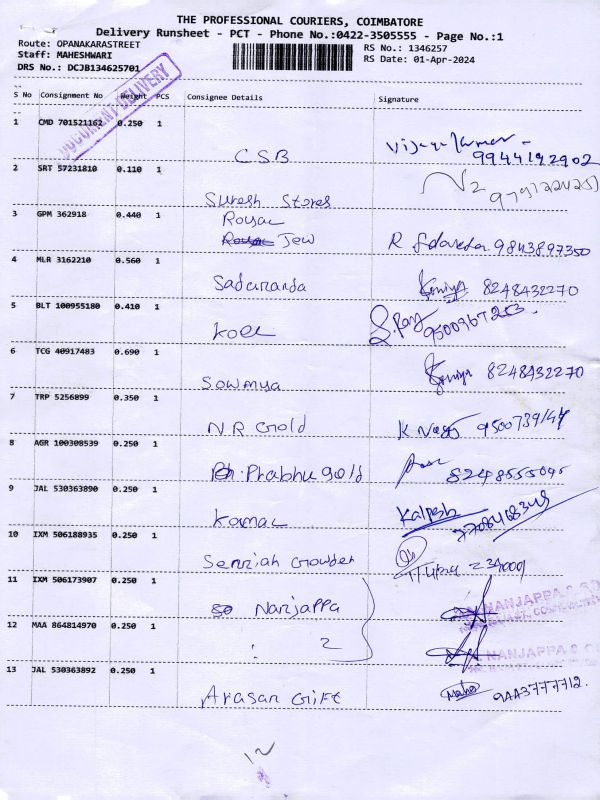 THE PROFESSIONAL COURIERS, COIMBATORE
Delivery Runsheet - PCT - Phone No.:0422-3505555 - Page No.:1
Route: OPANAKARASTREET
RS No.: 1346257
Staff: MAHESHWARI
RS Date: 01-Apr-2024
DRS No.: DCJB134625701
DOCUMENT DELIVERY
S No Consignment No Weight PCS Consignee Details Signature
1 CMD 701521162 0.250 1
CSB 9944192902
2 SRT 57231810 0.110 1
Suresh Stores
3 GPM 362918 0.440 1
Royal
Jew R 9843897350
4 MLR 3162210 0.560 1
Sadaranda 8248432270
5 BLT 100955180 0.410 1
Koel
6 TCG 40917483 0.690 1
Sowmya 8248432270
7 TRP 5256899 0.350 1
NR Gold K
8 AGR 100308539 0.250 1
Prabhu gold
9 JAL 530363890 0.250 1
Kamal Kalpesh 7708468349
10 IXM 506188935 0.250 1
11 IXM 506173907 0.250 1
Nanjappa
NANJAPPA &
12 MAA 864814970 0.250 1
2
NANJAPPA &
13 JAL 530363892 0.250 1
Arasan Gift Maha 9443777712.